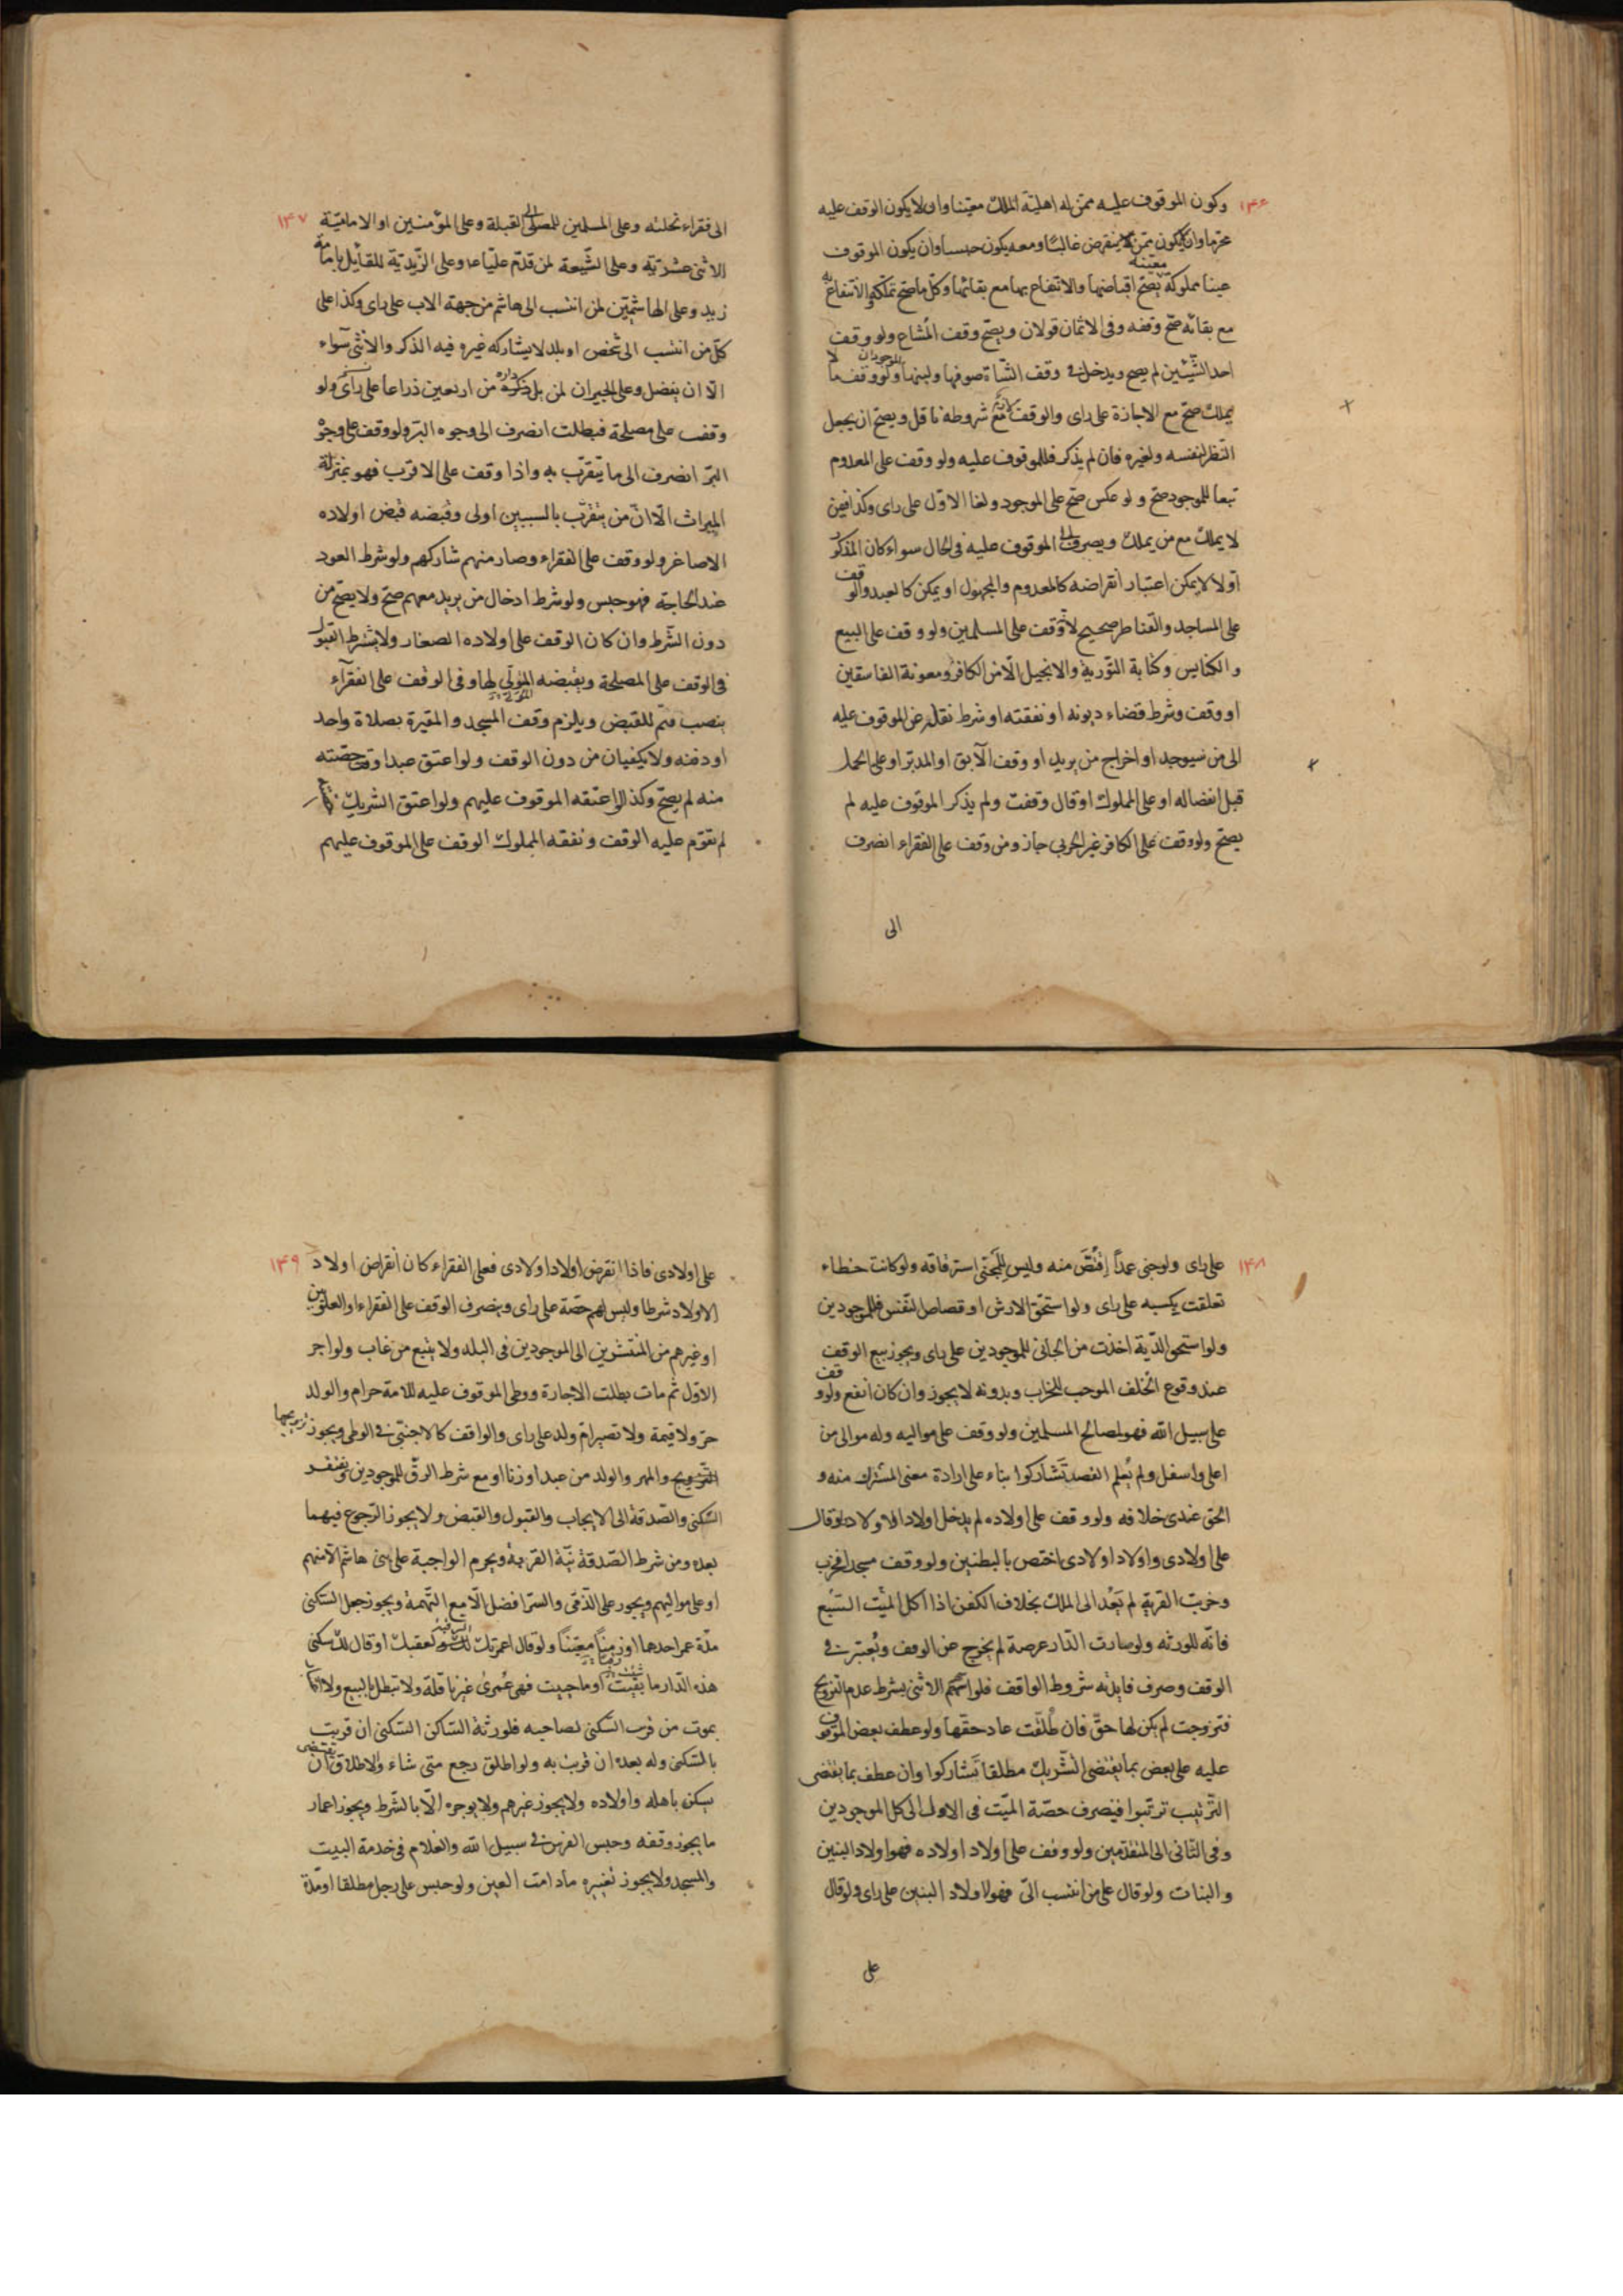 ۱۴۶
وكون الموقوف عليه ممن له اهلية الملك معينا وان لا يكون الوقف عليه
محرما وان يكون ممن لا ينقرض غالبا ومعه يكون حبسا وان يكون الموقوف
عينا معينة مملوكة يصح اقباضها والانتفاع بها مع بقائها وكل ما صح تملكه والانتفاع به
مع بقائه صح وقفه وفى الاثمان قولان ويصح وقف المشاع ولو وقف
احد الشيئين لم يصح ويدخل فى وقف الشاة صوفها ولبنها الموجودان ولو وقف ما لا
يملك صح مع الاجازة على راى والوقف لازم مع شروطه ناقل ويصح ان يجعل
النظر لنفسه ولغيره فان لم يذكر فللموقوف عليه ولو وقف على المعدوم
تبعا للموجود صح ولو عكس صح على الموجود ولغا الاول على راى وكذا فيمن
لا يملك مع من يملك ويصرف الى الموقوف عليه فى الحال سواء كان المذكور
اولا لا يمكن اعتبار انقراضه كالمعدوم والمجهول او يمكن كالعبد والوقف
على المساجد والقناطر صحيح لانه وقف على المسلمين ولو وقف على البيع
والكنايس وكتابة التورية والانجيل الا من الكافر ومعونة الفاسقين
او وقف وشرط قضاء ديونه او نفقته او شرط نقله عن الموقوف عليه
الى من سيوجد او اخراج من يريد او وقف الآبق او المدبر او على الحمل
قبل انفصاله او على المملوك او قال وقفت ولم يذكر الموقوف عليه لم
يصح ولو وقف على الكافر غير الحربى جاز ومن وقف على الفقراء انصرف
الى
۱۴۷
الى فقراء نحلته وعلى المسلمين للمصلى الى القبلة وعلى المؤمنين او الامامية
الاثنى عشرية وعلى الشيعة لمن قدم عليا عا وعلى الزيدية للقائل بامامة
زيد وعلى الهاشميين لمن انتسب الى هاشم من جهة الاب على راى وكذا على
كل من انتسب الى شخص او بلد لا يشاركه غيره فيه الذكر والانثى سواء
الا ان يفضل وعلى الجيران لمن يلى داره من اربعين ذراعا على راى ولو
وقف على مصلحة فبطلت انصرف الى وجوه البر ولو وقف على وجوه
البر انصرف الى ما يتقرب به واذا وقف على الاقرب فهو بمنزلة
الميراث الا ان من يتقرب بالسببين اولى وقبضه قبض اولاده
الاصاغر ولو وقف على الفقراء وصار منهم شاركهم ولو شرط العود
عند الحاجة فهو حبس ولو شرط ادخال من يريد معهم صح ولا يصح من
دون الشرط وان كان الوقف على اولاده الصغار ولا يشترط القبول
فى الوقف على المصلحة ويقبضه المولى لها وفى الوقف على الفقرآء
ينصب قيم للقبض ويلزم وقف المسجد والمقبرة بصلاة واحد
او دفنه ولا يكفيان من دون الوقف ولو اعتق عبدا وقف حصته
منه لم يصح وكذا لو اعتقه الموقوف عليهم ولو اعتق الشريك
لم تقوم عليه الوقف ونفقة المملوك الوقف على الموقوف عليهم
۱۴۸
على راى ولو جنى عمدا اقتص منه وليس للمجنى استرقاقه ولو كانت خطاء
تعلقت بكسبه على راى ولو استحق الارش او قصاص النفس فللموجودين
ولو استحق الدية اخذت من الجانى للموجودين على راى ويجوز بيع الوقف
عند وقوع الخلف الموجب للخراب وبدونه لا يجوز وان كان انفع ولو وقف
على سبيل الله فهو لمصالح المسلمين ولو وقف على مواليه وله موالى من
اعلى واسفل ولم يعلم القصد تشاركوا بناء على ارادة معنى المشترك منه و
الحق عندى خلافه ولو وقف على اولاده لم يدخل اولاد الاولاد ولو قال
على اولادى واولاد اولادى اختص بالبطنين ولو وقف مسجدا فخرب
وخربت القرية لم يعد الى الملك بخلاف الكفن اذا اكل الميت السبع
فانه للورثه ولو صارت الدار عرصة لم يخرج عن الوقف ويعتبر فى
الوقف وصرف فايدته شروط الواقف فلو اسهم الانثى بشرط عدم التزويج
فتزوجت لم يكن لها حق فان طلقت عاد حقها ولو عطف بعض الموقوف
عليه على بعض بما يقتضى التشريك مطلقا تشاركوا وان عطف بما يقتضى
الترتيب ترتبوا فيصرف حصة الميت فى الاول الى كل الموجودين
وفى الثانى الى المتقدمين ولو وقف على اولاد اولاده فهو اولاد البنين
والبنات ولو قال على من انتسب الى فهو لاولاد البنين على راى ولو قال
على
۱۴۹
على اولادى فاذا انقرض اولاد اولادى فعلى الفقراء كان انقراض اولاد
الاولاد شرطا وليس لهم حصة على راى ويصرف الوقف على الفقراء او العلويين
او غيرهم من المنتشرين الى الموجودين فى البلد ولا يتبع من غاب ولو اجر
الاول ثم مات بطلت الاجارة ووطى الموقوف عليه للامة حرام والولد
حر ولا قيمة ولا تصير ام ولد على راى والواقف كالاجنبى فى الوطى ويجوز تزويجها
والمهر والولد من عبد او زنا او مع شرط الرق للموجودين ويفتقر
السكنى والصدقة الى الايجاب والقبول والقبض ولا يجوز الرجوع فيهما
بعده ومن شرط الصدقة نية القربة ويحرم الواجبة على بنى هاشم الا منهم
او على مواليهم ويجوز على الذمى والسر افضل الا مع التهمة ويجوز جعل السكنى
مدة عمر احدها او زمنا معينا ولو قال اعمرتك لك ولعقبك او قال لك سكنى
هذه الدار ما بقيت او ما حييت فهى عمرى غير ناقلة ولا تبطل بالبيع ولا
بموت من قرب السكنى لصاحبه فلورثة الساكن السكنى ان قربت
بالسكنى وله بعده ان قرنت به ولو اطلق رجع متى شاء والاطلاق يقتضى ان
يسكن باهله واولاده ولا يجوز غيرهم ولا يوجره الا بالشرط ويجوز اعمار
ما يجوز وقفه وحبس الفرس فى سبيل الله والغلام فى خدمة البيت
والمسجد ولا يجوز تغييره ما دامت العين ولو حبس على رجل مطلقا او مدة